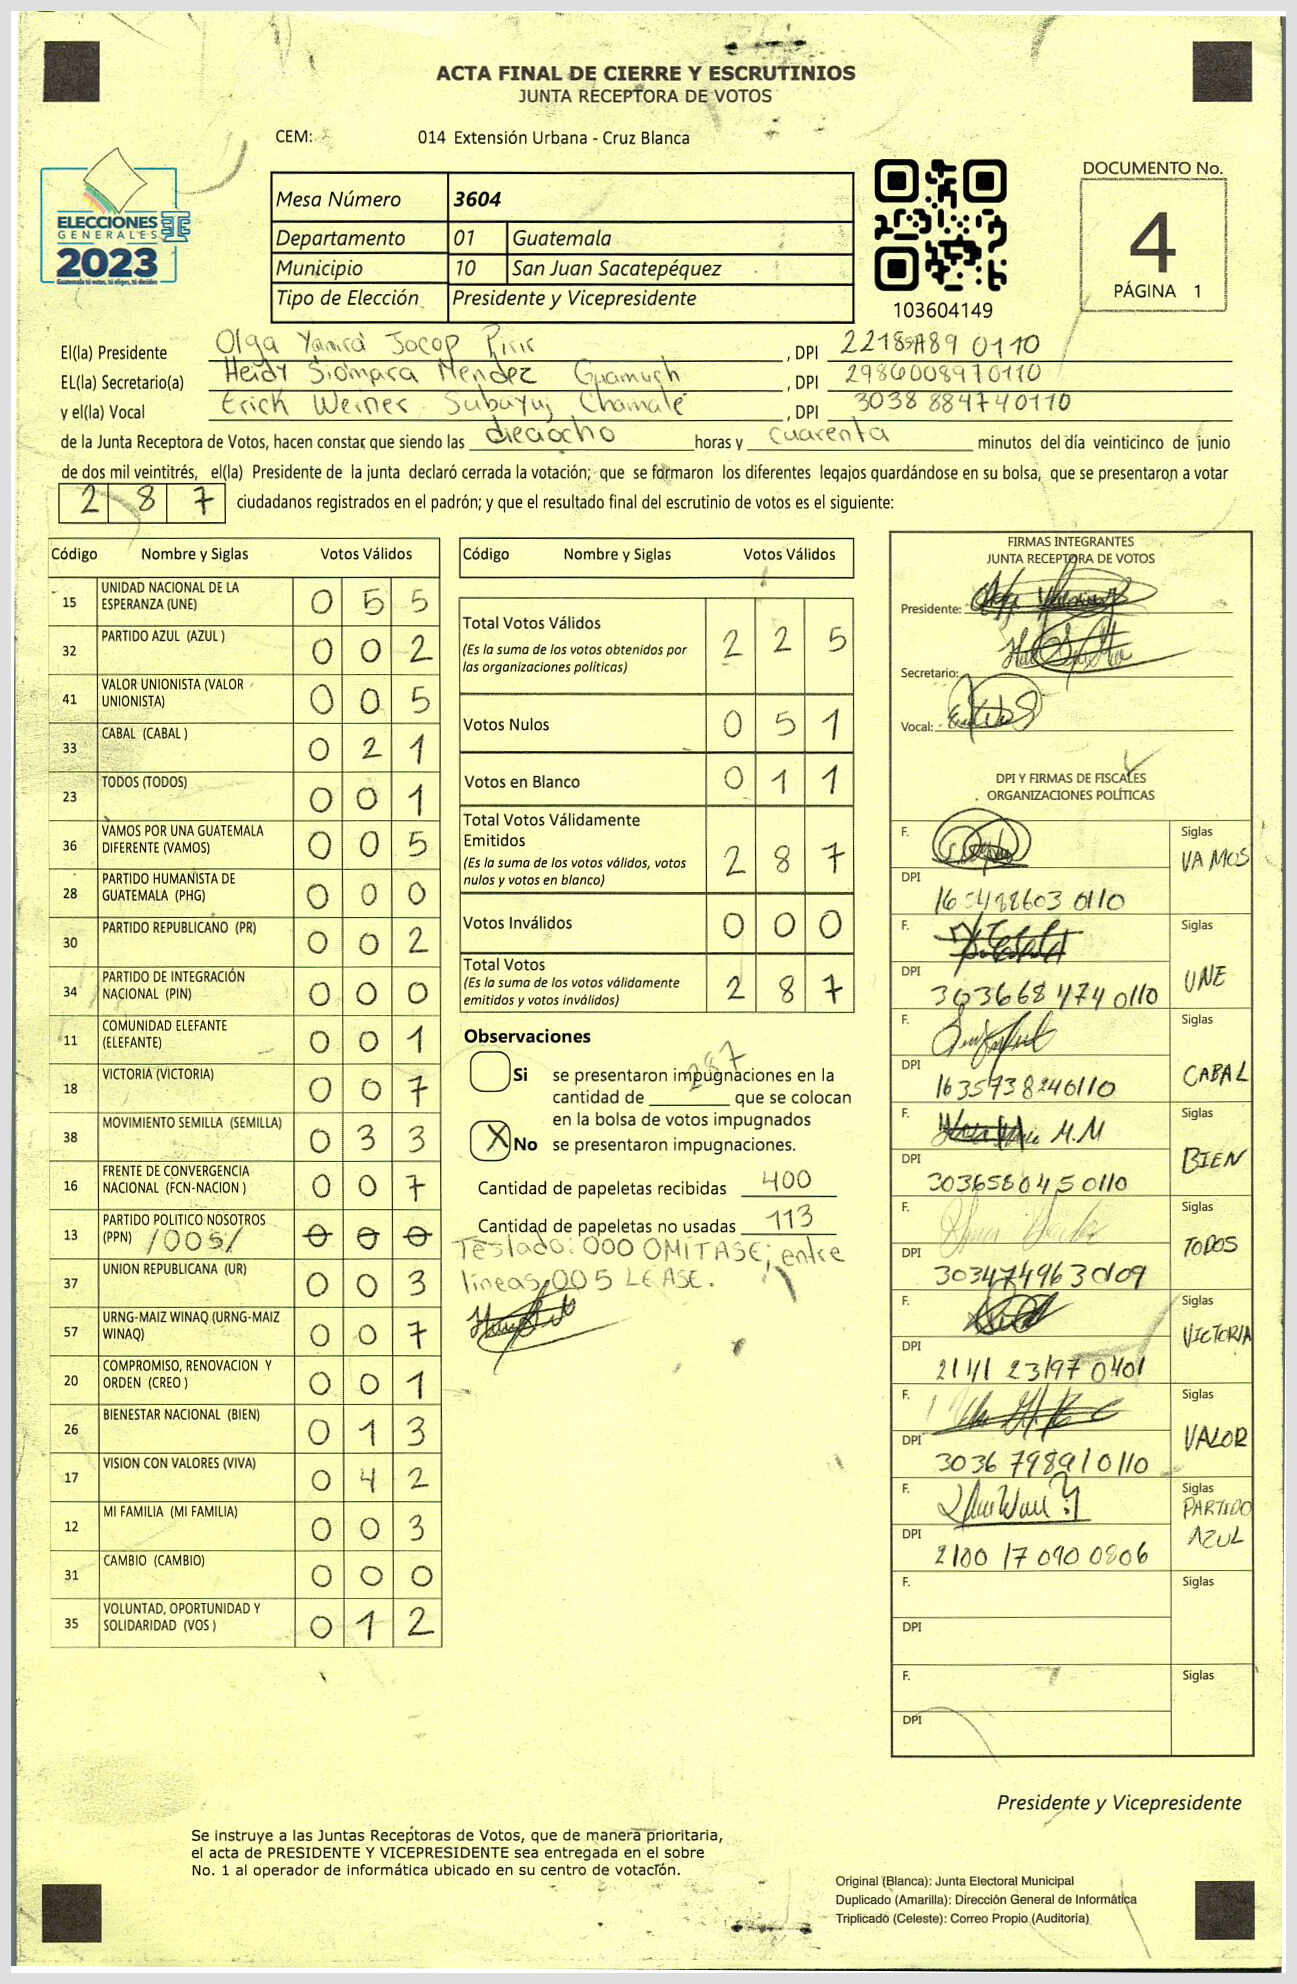 ACTA FINAL DE CIERRE Y ESCRUTINIOS
JUNTA RECEPTORA DE VOTOS
CEM: 014 Extensión Urbana - Cruz Blanca
ELECCIONES
GENERALES
2023
Guatemala tú votas, tú eliges, tú decides
Mesa Número 3604
Departamento 01 Guatemala
Municipio 10 San Juan Sacatepéquez
Tipo de Elección Presidente y Vicepresidente
103604149
DOCUMENTO No.
4
PÁGINA 1
El(la) Presidente Olga Yanira Jocop Pirir, DPI 0110
EL(la) Secretario(a) Heidy Siomara Mendez Guamuch, DPI 2986008970110
y el(la) Vocal Erick Weiner Subuyuj Chamale, DPI 3038 884740110
de la Junta Receptora de Votos, hacen constar que siendo las dieciocho horas y cuarenta minutos del día veinticinco de junio
de dos mil veintitrés, el(la) Presidente de la junta declaró cerrada la votación; que se formaron los diferentes legajos quardándose en su bolsa, que se presentaron a votar
2 8 7 ciudadanos registrados en el padrón; y que el resultado final del escrutinio de votos es el siguiente:
Código Nombre y Siglas Votos Válidos
15 UNIDAD NACIONAL DE LA ESPERANZA (UNE) 0 5 5
32 PARTIDO AZUL (AZUL ) 0 0 2
41 VALOR UNIONISTA (VALOR UNIONISTA) 0 0 5
33 CABAL (CABAL ) 0 2 1
23 TODOS (TODOS) 0 0 1
36 VAMOS POR UNA GUATEMALA DIFERENTE (VAMOS) 0 0 5
28 PARTIDO HUMANISTA DE GUATEMALA (PHG) 0 0 0
30 PARTIDO REPUBLICANO (PR) 0 0 2
34 PARTIDO DE INTEGRACIÓN NACIONAL (PIN) 0 0 0
11 COMUNIDAD ELEFANTE (ELEFANTE) 0 0 1
18 VICTORIA (VICTORIA) 0 0 7
38 MOVIMIENTO SEMILLA (SEMILLA) 0 3 3
16 FRENTE DE CONVERGENCIA NACIONAL (FCN-NACION ) 0 0 7
13 PARTIDO POLITICO NOSOTROS (PPN) /005/ 0 0 0
37 UNION REPUBLICANA (UR) 0 0 3
57 URNG-MAIZ WINAQ (URNG-MAIZ WINAQ) 0 0 7
20 COMPROMISO, RENOVACION Y ORDEN (CREO ) 0 0 1
26 BIENESTAR NACIONAL (BIEN) 0 1 3
17 VISION CON VALORES (VIVA) 0 4 2
12 MI FAMILIA (MI FAMILIA) 0 0 3
31 CAMBIO (CAMBIO) 0 0 0
35 VOLUNTAD, OPORTUNIDAD Y SOLIDARIDAD (VOS ) 0 1 2
Código Nombre y Siglas Votos Válidos
Total Votos Válidos 2 2 5
(Es la suma de los votos obtenidos por
las organizaciones políticas)
Votos Nulos 0 5 1
Votos en Blanco 0 1 1
Total Votos Válidamente
Emitidos 2 8 7
(Es la suma de los votos válidos, votos
nulos y votos en blanco)
Votos Inválidos 0 0 0
Total Votos 2 8 7
(Es la suma de los votos válidamente
emitidos y votos inválidos)
Observaciones
Si se presentaron impugnaciones en la
cantidad de 287 que se colocan
en la bolsa de votos impugnados
X No se presentaron impugnaciones.
Cantidad de papeletas recibidas 400
Cantidad de papeletas no usadas 113
Testado: 000 OMITASE; entre
lineas 005 LEASE.
FIRMAS INTEGRANTES
JUNTA RECEPTORA DE VOTOS
Presidente:
Secretario:
Vocal:
DPI Y FIRMAS DE FISCALES
ORGANIZACIONES POLÍTICAS
F. Siglas VAMOS
DPI
F. Siglas UNE
DPI 303668 474 0110
F. Siglas CABAL
DPI 1635738240110
F. M.M Siglas BIEN
DPI 3036580450110
F. Siglas TODOS
DPI 3034749630109
F. Siglas VICTORIA
DPI 2141 23197 0401
F. Siglas VALOR
DPI 3036 798910110
F. Siglas PARTIDO AZUL
DPI 2100 17090 0806
F. Siglas
DPI
F. Siglas
DPI
Presidente y Vicepresidente
Se instruye a las Juntas Receptoras de Votos, que de manera prioritaria,
el acta de PRESIDENTE Y VICEPRESIDENTE sea entregada en el sobre
No. 1 al operador de informática ubicado en su centro de votación.
Original (Blanca): Junta Electoral Municipal
Duplicado (Amarilla): Dirección General de Informática
Triplicado (Celeste): Correo Propio (Auditoría)